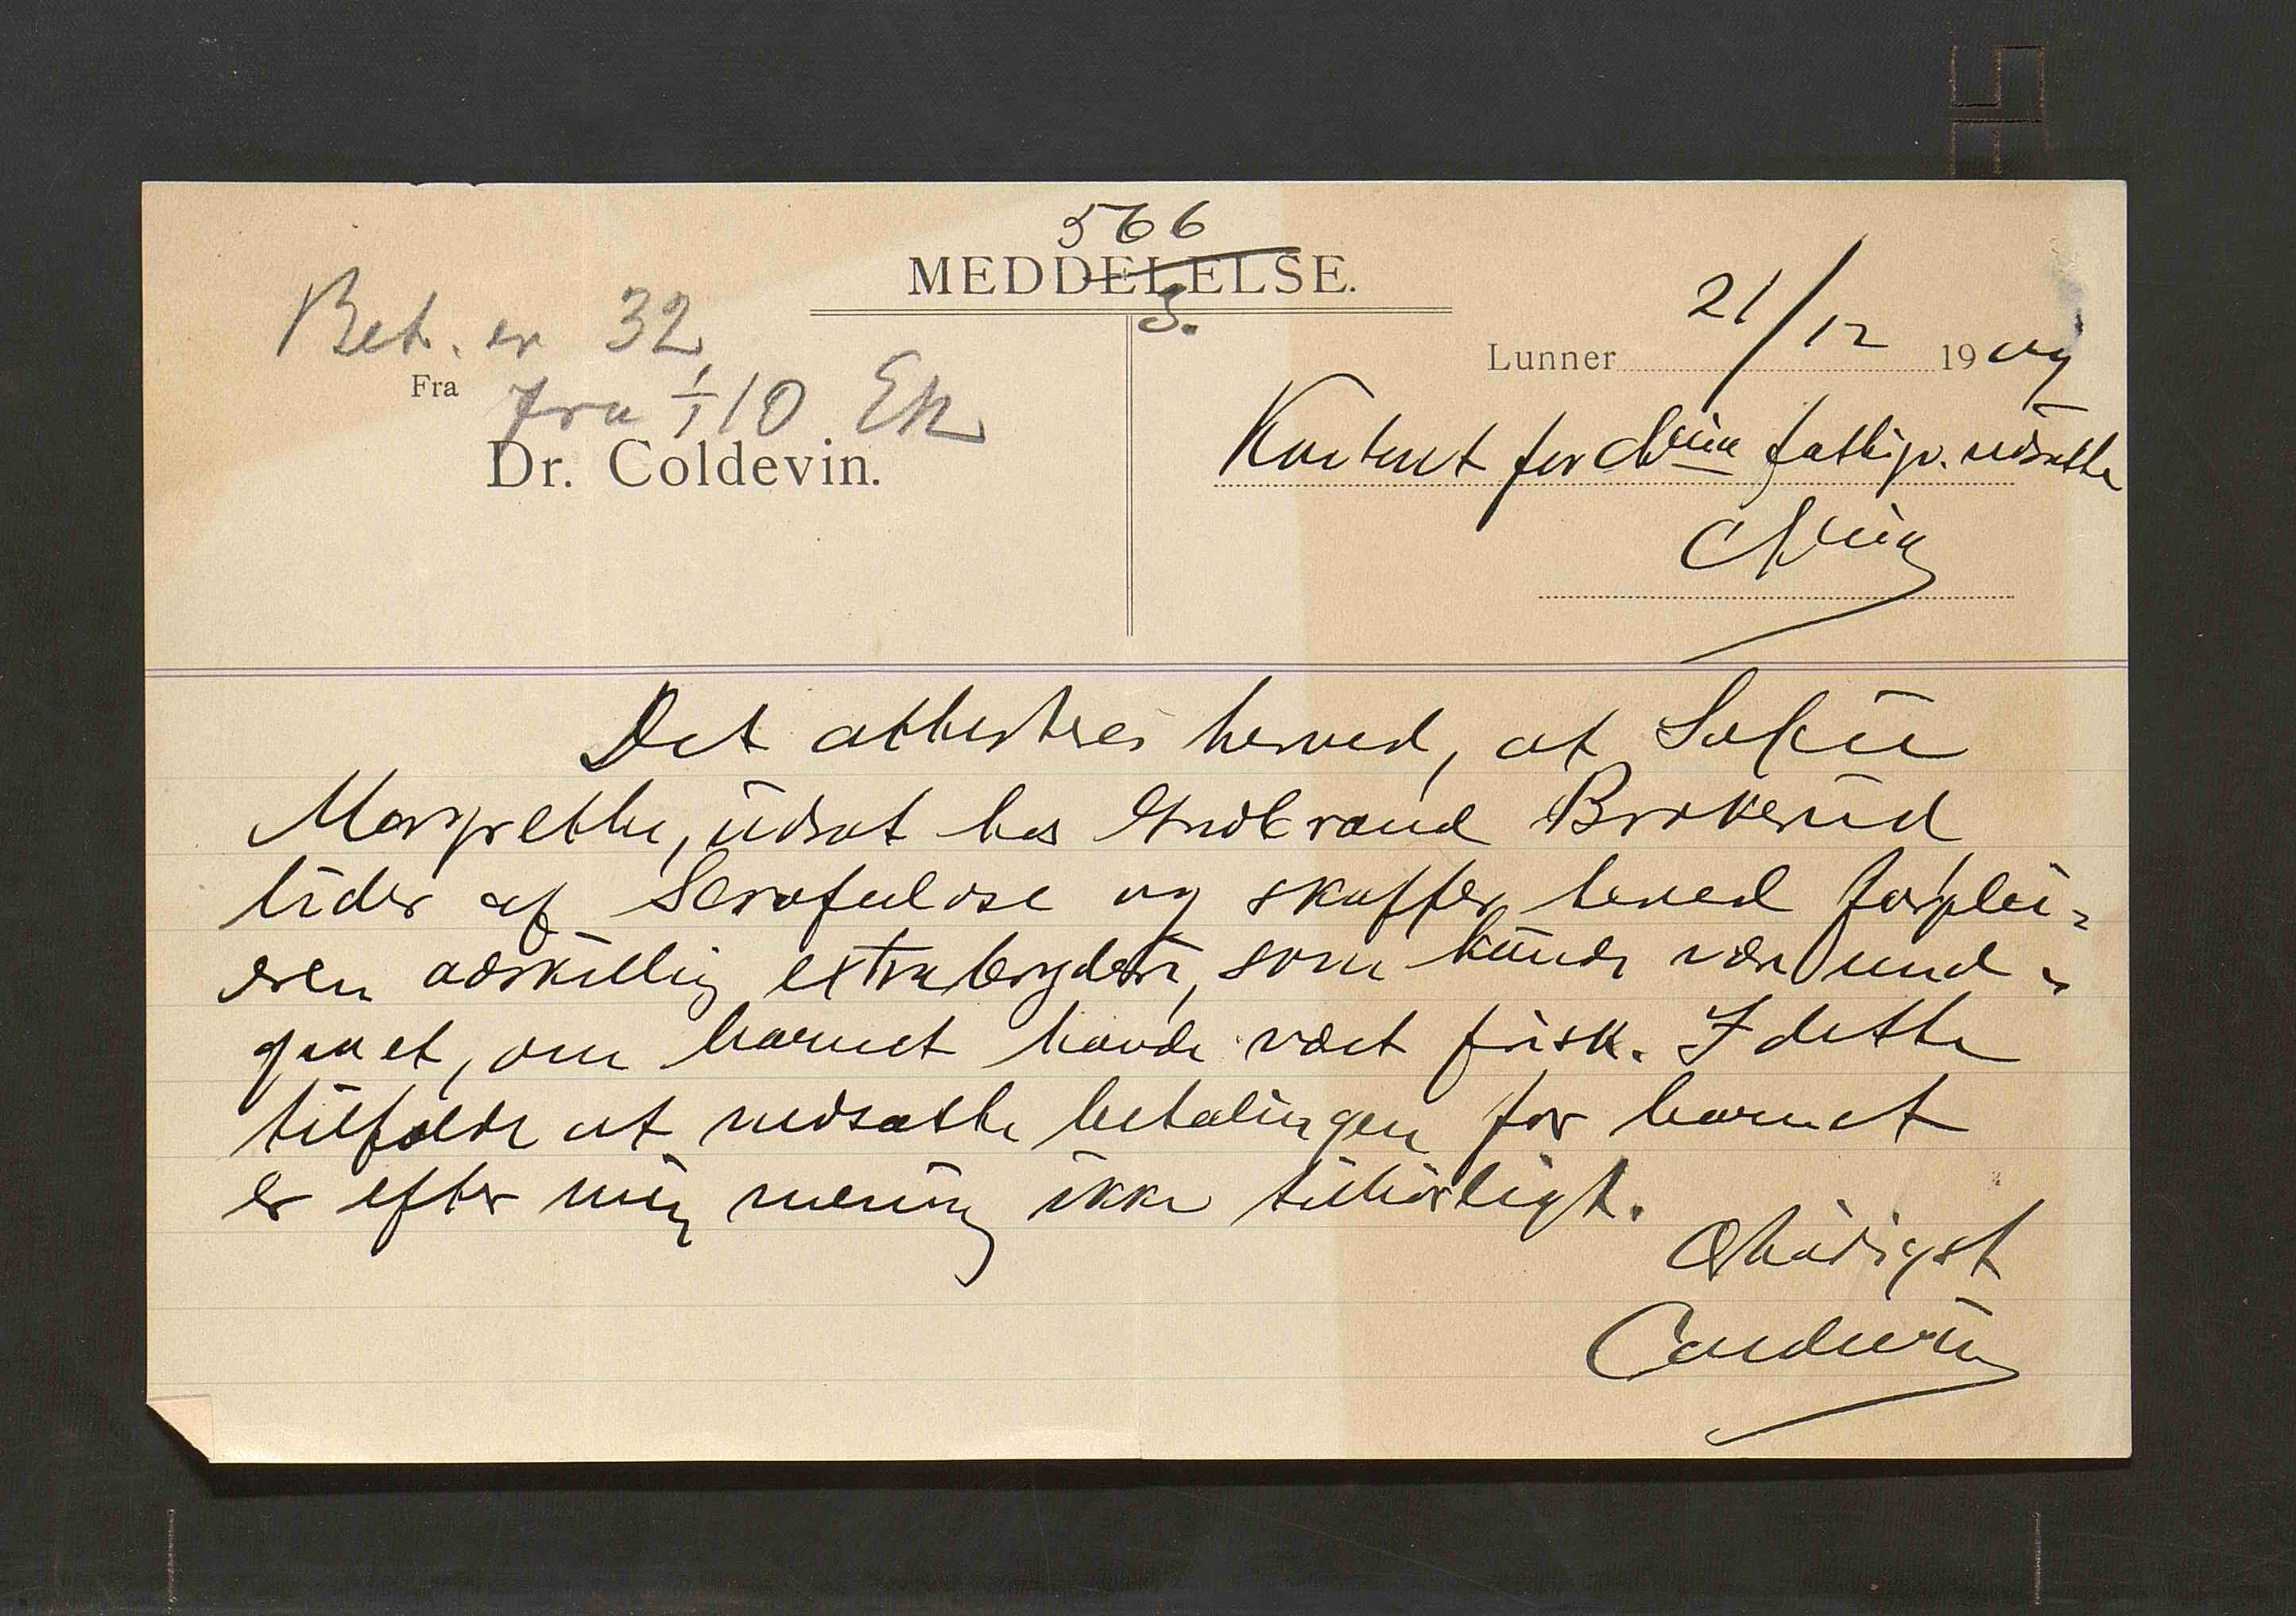 566
MEDDELELSE.
3.
Bet. er 32,
Fra
fra 1/1 10 Ek
Dr. Coldevin.
Lunner 21/12 1909
Kontoret for Chria fattigv. udsatte
Chria
Det attesteres herved, at Sofie
Margrethe, udsat hos Gudbrand Brokerud
lider af Scrofulose og skaffer herved forplei-
eren adskillig extrabryderi, som kunde være und-
gaaet, om barnet havde vært frisk. I dette
tilfælde at nedsætte betalingen for barnet
er efter min mening ikke tilbørligt.
Ærbødigst
Coldevin